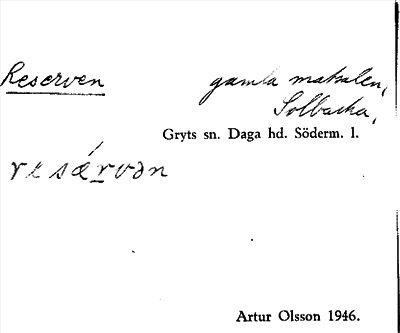 Reserven
gamla matsalen,
Solbacka,
Gryts sn. Daga hd. Söderm. l.
resærvən
Artur Olsson 1946.